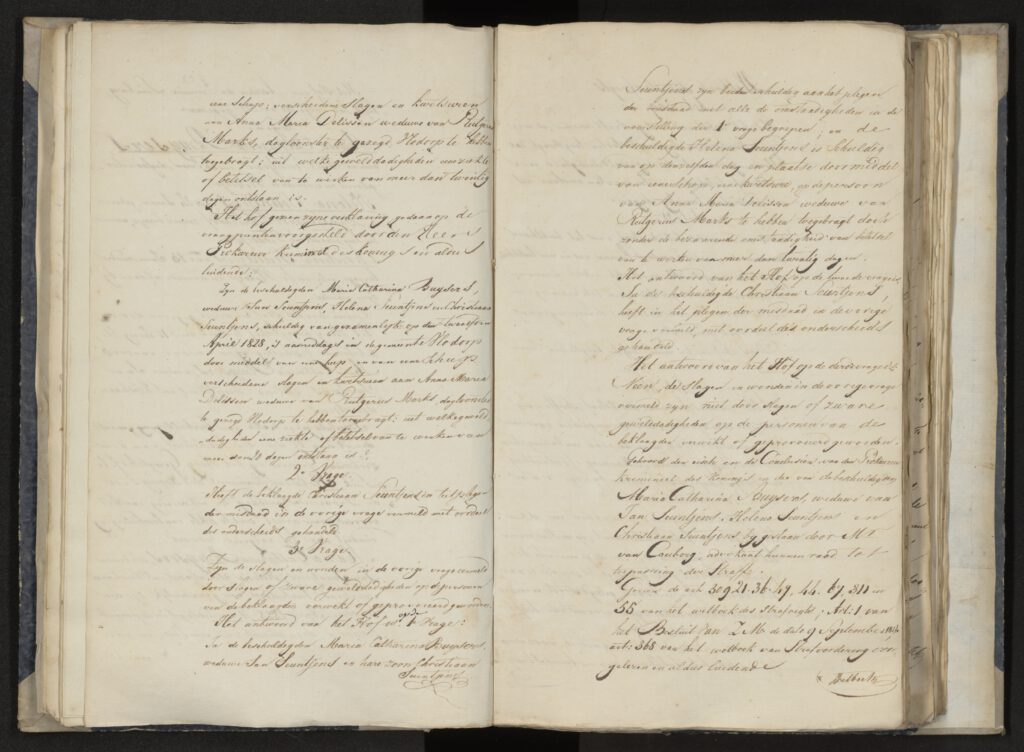 een Schup; verscheidene Slagen en kwetsuren
aan Anna Maria Delissen weduwe van Rutgerus
Marks, dagloonster te gezegd Vlodorp te hebben
toegebragt; uit welke gewelddadigheden eene ziekte
of beletsel van te werken van meer dan twentig
dagen ontstaan is.
Het hof geeven zijne verklaring gedaan op de
vraagpunten voorgesteld door den Heer
Prokureur krimineel des konings en aldus
luidende:
Zyn de beschuldigden Maria Catharina Ruysers,
weduwe Jan Seuntjens, Helena Seuntjens en Christiaan
Seuntjens, schuldig van gezamenlijk op den twaalfden
April 1828, 's namiddags in de gemeente Vlodorp
door middel van een schup en van eene
verscheidene slagen en kwetsuren aan Anna Maria
Delissen weduwe van Rutgerus Marks, dagloonster
te gezegd Vlodorp te hebben toegebragt; uit welke geweld
dadigheden eene ziekte of beletsel van te werken van
meer dan 20 dagen ontstaan is?
2e Vrage
Heeft de beklaagde Christiaan Seuntjens in het plegen
der misdaad in de vorige vrage vermeld met oordeel
des onderscheids gehandeld
3e Vrage
Zyn de slagen en wonden in de vorige vrage vermeld
door slagen of zware gewelddadigheden op de persoonen
van de beklaagden verwekt of geprovoceerd geworden
Het antwoord van het Hof op de 1e Vrage:
Ja de beschuldigden Maria Catharina Ruysers,
weduwe Jan Seuntjens en hare zoon Christiaan
Seuntjens
Seuntjens zyn beiden schuldig aan het plegen
der misdaad met alle de omstandigheden in de
voorstelling der 1e vrage begrepen; en de
beschuldigde Helena Seuntjens is schuldig
van op denzelfden dag en plaatse door middel
van eene schup, eene kwetsure, op de persoon
van Anna Maria Delissen weduwe van
Rutgerus Marks te hebben toegebragt doch
zonder de bezwarende omstandigheid van beletsel
van te werken van meer dan twentig dagen.
Het antwoord van het Hof op de tweede vrage is
Ja de beschuldigde Christiaan Seuntjens,
heeft in het plegen der misdaad in de vorige
vrage vermeld met oordeel des onderscheids
gehandeld.
Het antwoord van het Hof op de derde vrage is
Neen, de slagen en wonden in de vorige vrage
vermeld zyn niet door slagen of zware
gewelddadigheden op de personen van de
beklaagden verwekt of geprovoceerd geworden.
Gehoord den eisch en de Conclusien van den Prokureur
krimineel des konings en die van de beschuldigden
Maria Catharina Ruysers, weduwe van
Jan Seuntjens, Helena Seuntjens en
Christiaan Seuntjens bygestaan door Mr
van Couberg, advokaat hunnen raad tot
toepassing der Straffe.
Gezien de art: 309. 21. 36. 47, 44. 67, 311 en
55 van het wetboek des Strafregts; Art: 1 van
het Besluit van Z. M. de dato 9 September 1814
art: 368 van het wetboek van Strafvordering voor
gelezen en aldus luidende